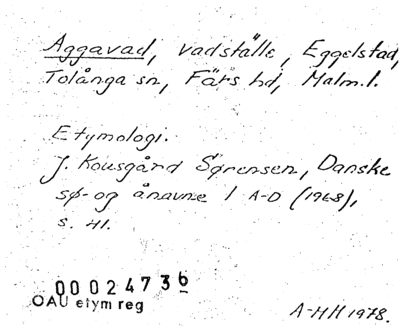 Aggavad, vadställe, Eggelstad,
Tolånga sn, Färs hd, Malm.l.
Etymologi.
J. Kousgård Sørensen, Danske
sø- og ånavne 1 A-D (1968),
s. 41.
00024736
OAU etym reg
A-MH 1978.